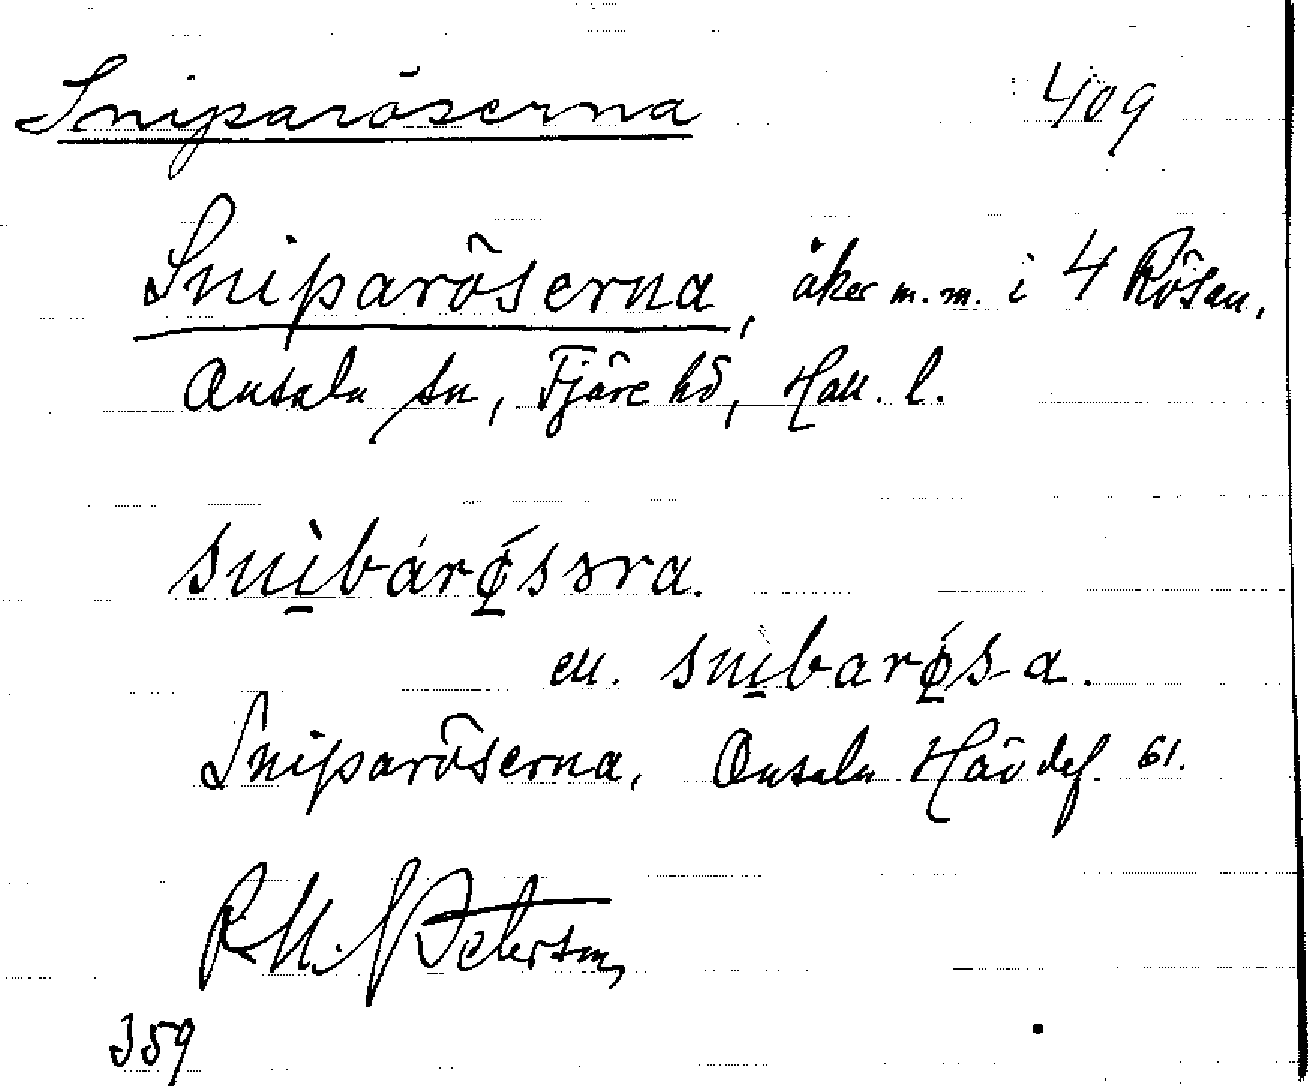 Sniparöserna 409
Sniparöserna, åker m.m. i 4 Rösan,
Onsala sn, Fjäre hd, Hall. l.
snìbárǿssra.
ell. snìbarǿsa.
Sniparöserna, Onsala Hävdef. 61.
Petersson,
359